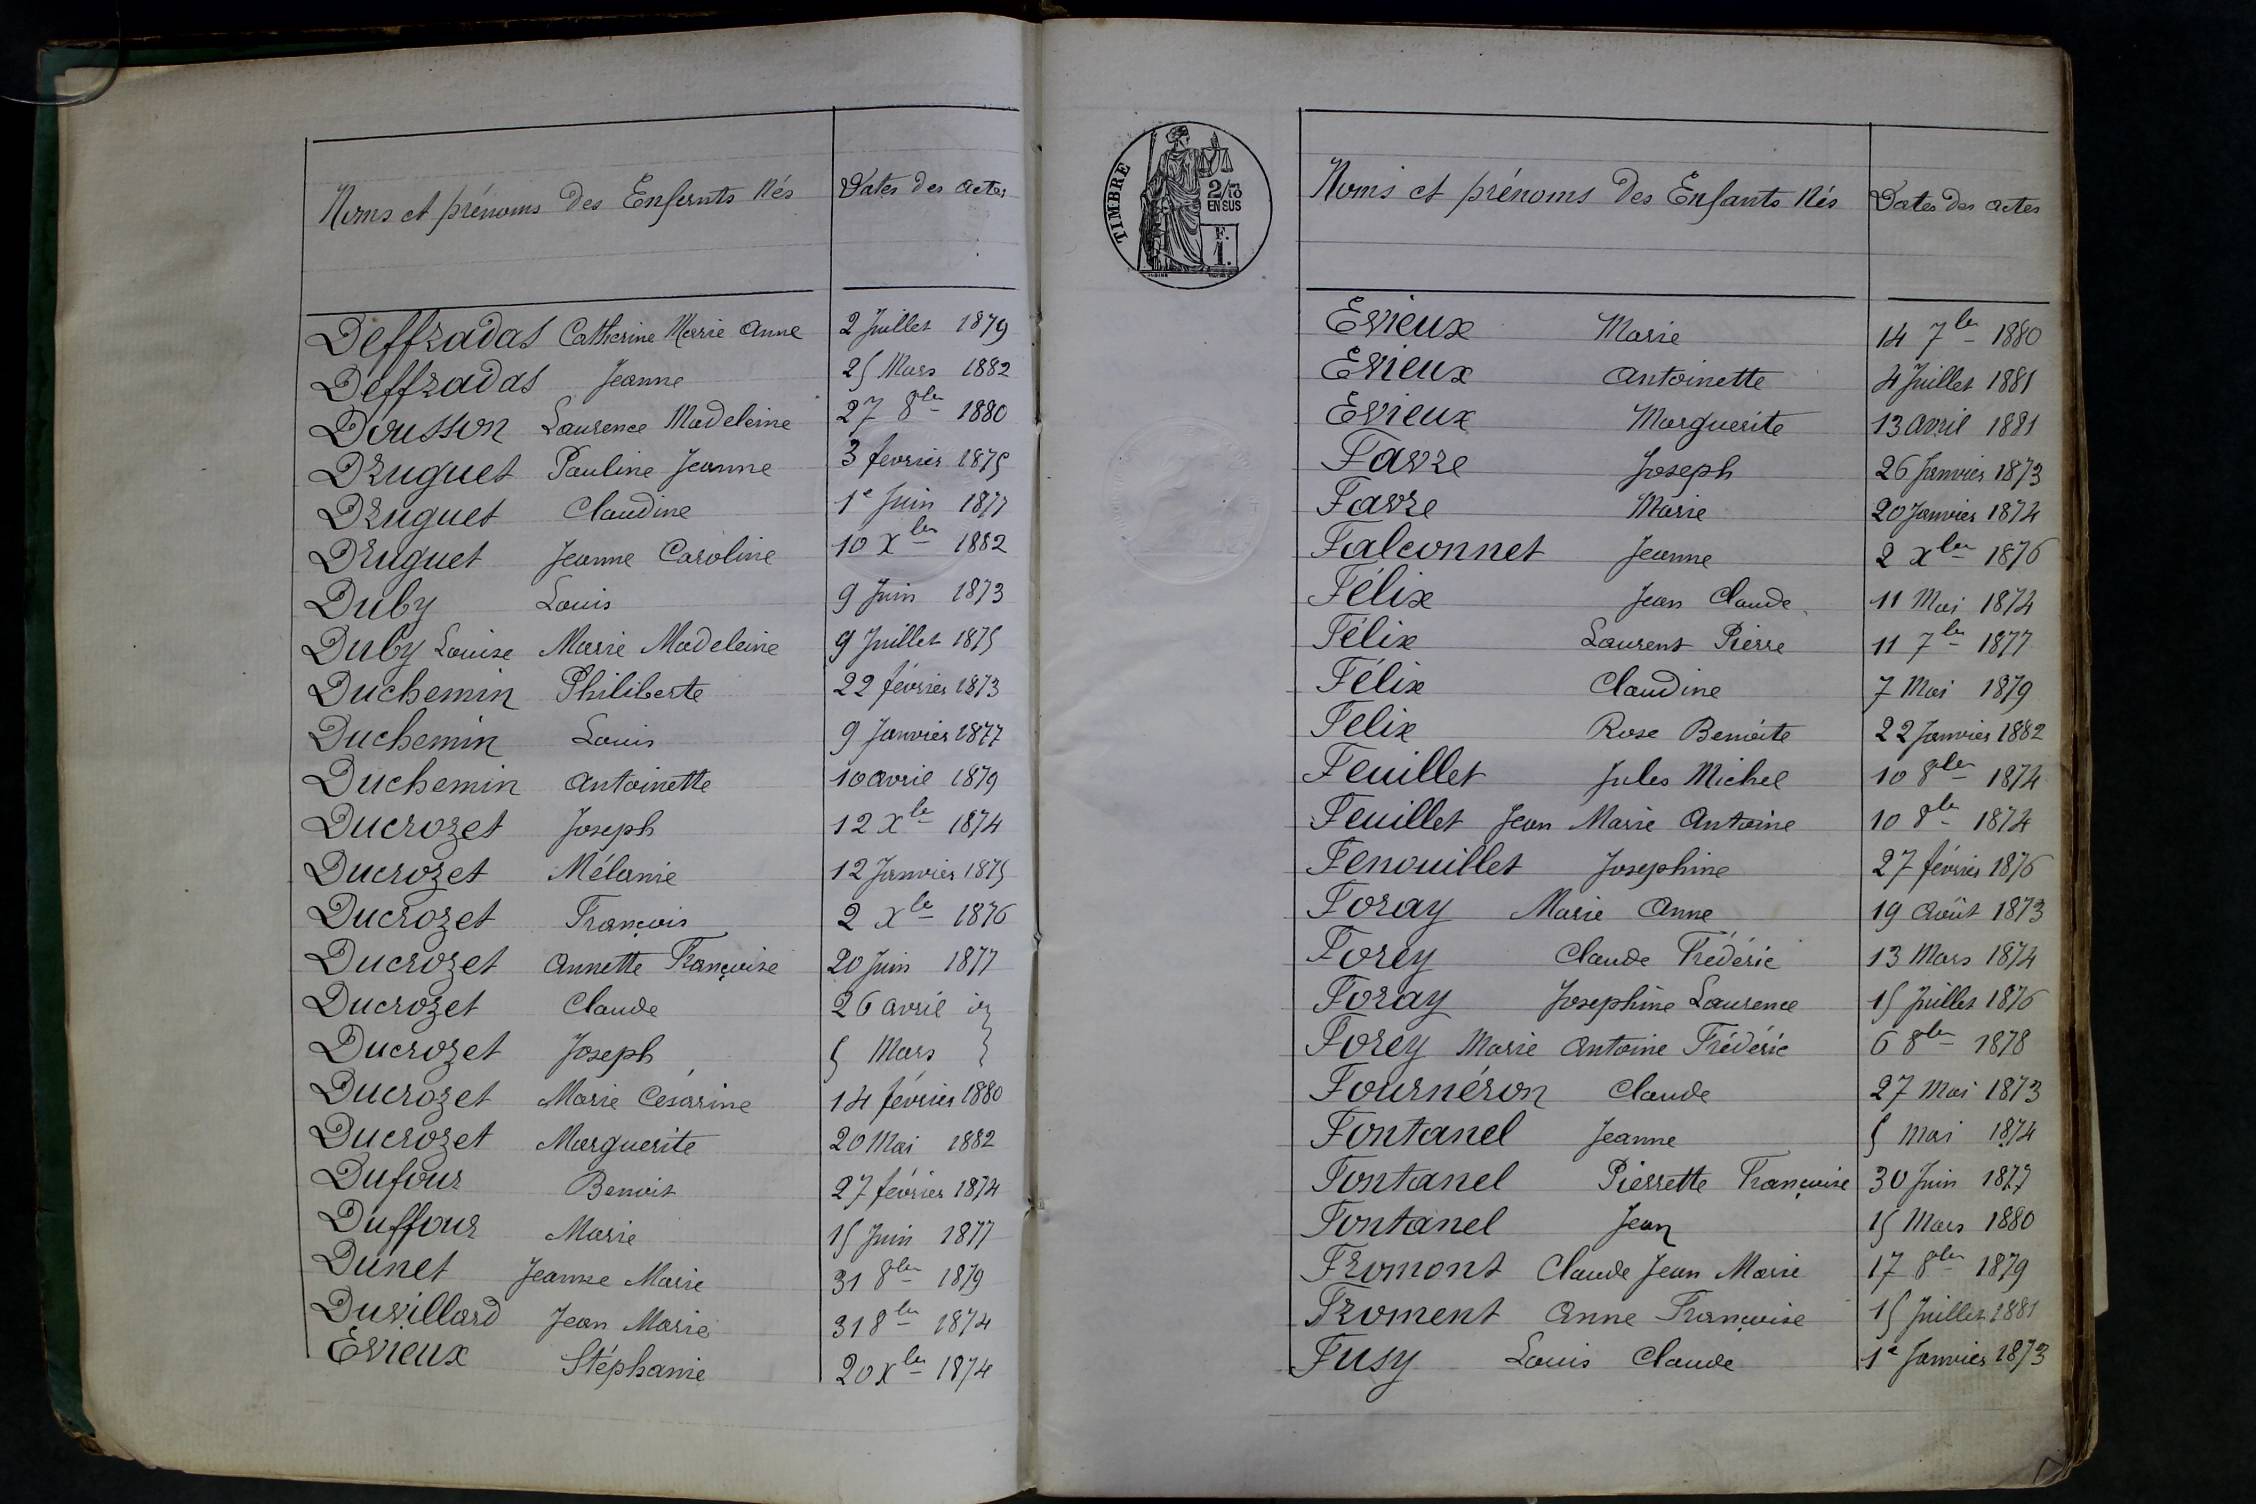 Noms et prénoms des Enfants Nés Dates des actes
Deffradas Catherine Marie Anne 2 Juillet 1879
Deffradas Jeanne 25 Mars 1882
Dousson Laurence Madeleine 27 8bre 1880
Druguet Pauline Jeanne 3 fevrier 1875
Druguet Claudine 1e Juin 1877
Druguet Jeanne Caroline 10 Xbre 1882
Duby Louis 9 Juin 1873
Duby Louise Marie Madeleine 9 Juillet 1875
Duchemin Philiberte 22 février 1873
Duchemin Louis 9 Janvier 1877
Duchemin Antoinette 10 avril 1879
Ducrozet Joseph 12 Xbre 1874
Ducrozet Mélanie 12 Janvier 1875
Ducrozet François 2 Xbre 1876
Ducrozet Annette Françoise 20 Juin 1877
Ducrozet Claude 26 avril
Ducrozet Joseph 5 Mars
Ducrozet Marie Césarine 14 février 1880
Ducrozet Marguerite 20 Mai 1882
Dufour Benoit 27 février 1874
Duffour Marie 15 Juin 1877
Dunet Jeanne Marie 31 8bre 1879
Duvillard Jean Marie 31 8bre 1874
Evieux Stéphanie 20 Xbre 1874
TIMBRE
2/10 EN SUS
F.
1.
Noms et prénoms des Enfants Nés Dates des actes
Evieux Marie 14 7bre 1880
Evieux Antoinette 4 Juillet 1881
Evieux Marguerite 13 avril 1881
Favre Joseph 26 Janvier 1873
Favre Marie 20 Janvier 1874
Falconnet Jeanne 2 Xbre 1876
Félix Jean Claude 11 Mai 1874
Félix Laurent Pierre 11 7bre 1877
Félix Claudine 7 Mai 1879
Felix Rose Benoite 22 Janvier 1882
Feuillet Jules Michel 10 8bre 1874
Feuillet Jean Marie Antoine 10 8bre 1874
Fenouillet Josephine 27 février 1876
Foray Marie Anne 19 Août 1873
Forey Claude Frédéric 13 Mars 1874
Foray Josephine Laurence 15 Juillet 1876
Forey Marie Antoine Frédéric 6 8bre 1878
Fournéron Claude 27 Mai 1873
Fontanel Jeanne 5 Mai 1874
Fontanel Pierrette Françoise 30 Juin 1877
Fontanel Jean 15 Mars 1880
Fromont Claude Jean Marie 17 8bre 1879
Froment Anne Françoise 15 Juillet 1881
Fusy Louis Claude 1e Janvier 1873